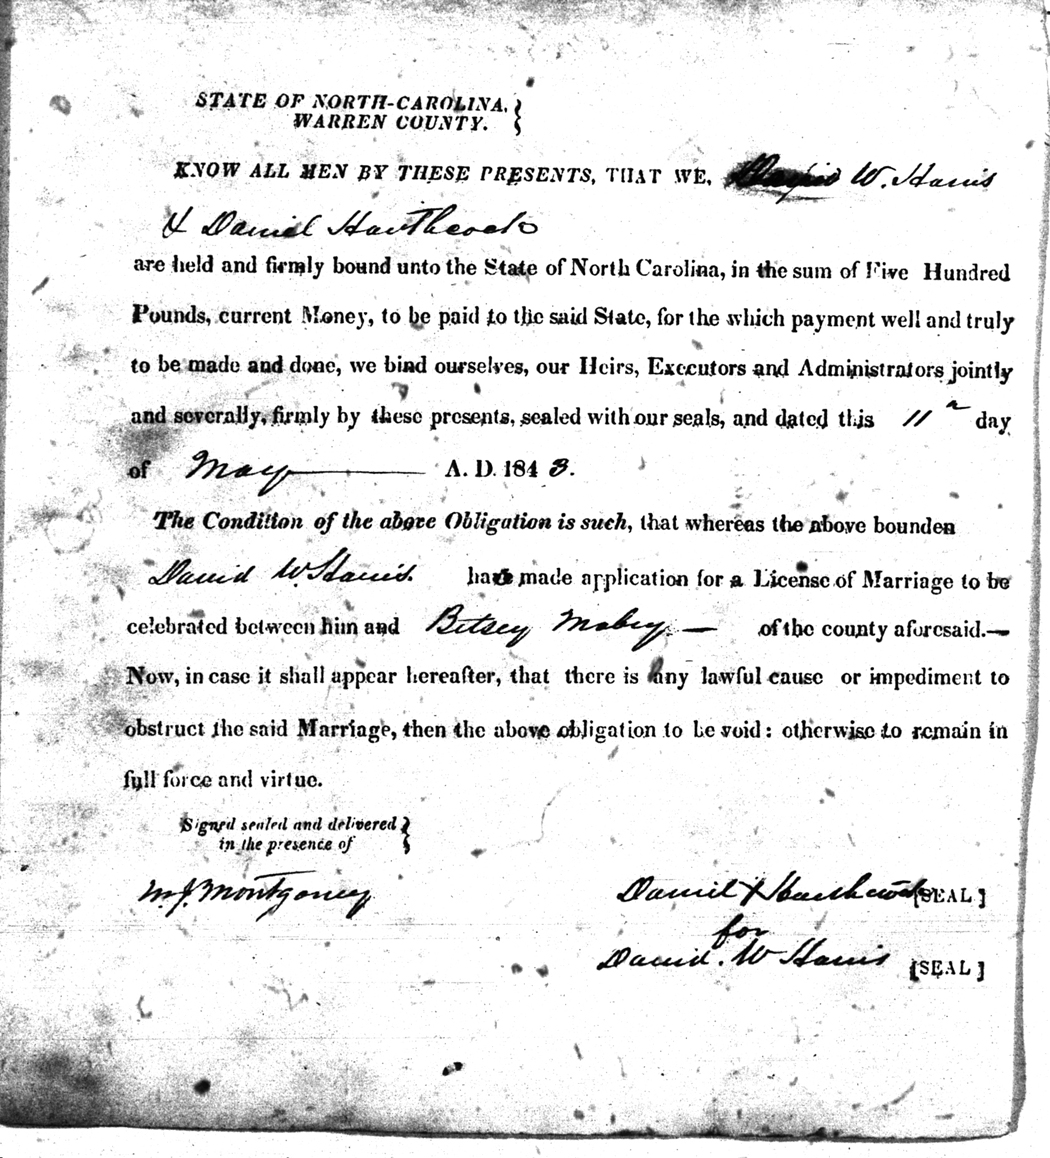 STATE OF NORTH-CAROLINA,
WARREN COUNTY.
KNOW ALL MEN BY THESE PRESENTS, THAT WE, David W. Harris
& Daniel Harthcock
are held and firmly bound unto the State of North Carolina, in the sum of Five Hundred
Pounds, current Money, to be paid to the said State, for the which payment well and truly
to be made and done, we bind ourselves, our Heirs, Executors and Administrators jointly
and severally, firmly by these presents, sealed with our seals, and dated this 11 day
of May A. D. 1843.
The Condition of the above Obligation is such, that whereas the above bounden
David W. Harris. has made application for a License of Marriage to be
celebrated between him and Betsey Mabry — of the county aforesaid.—
Now, in case it shall appear hereafter, that there is any lawful cause or impediment to
obstruct the said Marriage, then the above obligation to be void: otherwise to remain in
full force and virtue.
Signed sealed and delivered
in the presence of
M. J. Montgomery Daniel X Harthcock [SEAL]
for
David. W Harris [SEAL]